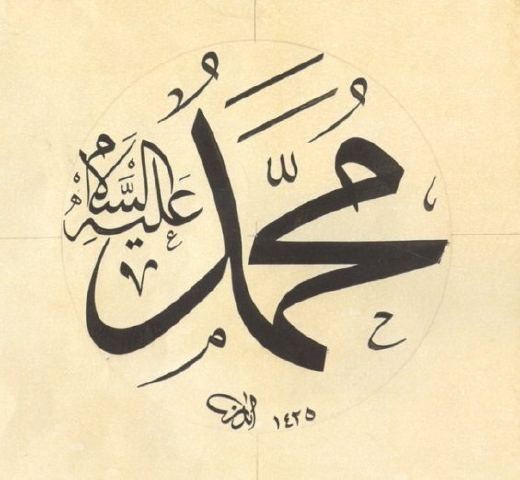 مُحَمَّدٌ
عليه السلام
١٤٢٥